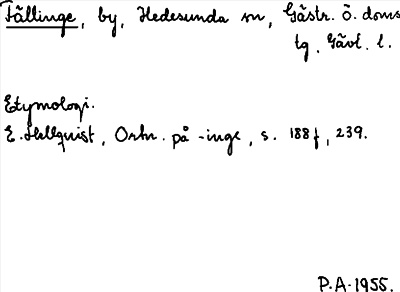 Fällinge, by, Hedesunda sn, Gästr. ö. doms
tg, Gävl. l.
Etymologi.
E. Hellquist, Ortn. på -inge, s. 188 f, 239.
P.A. 1955.